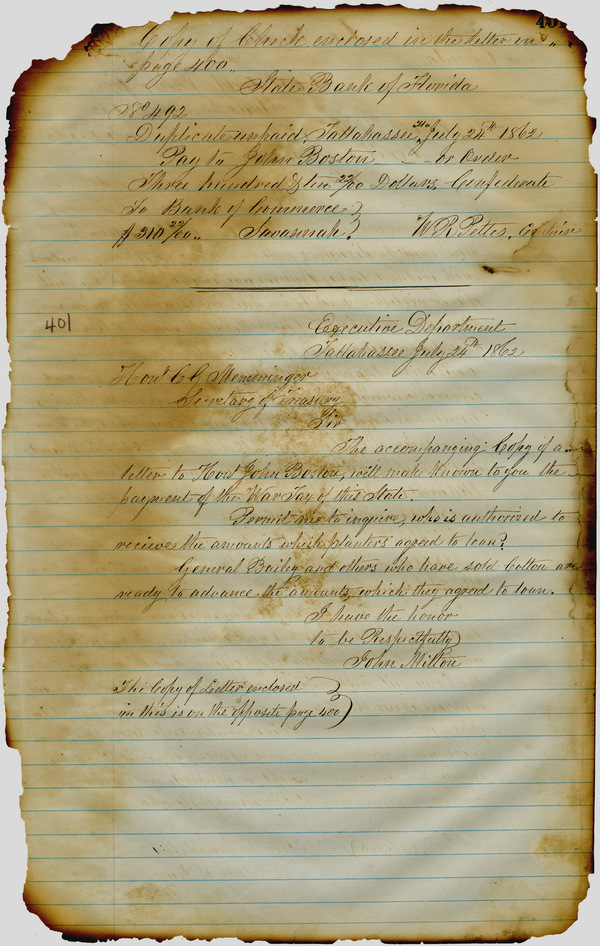 401
Copy of Check enclosed in the letter on
page 400.
State Bank of Florida
No 492
Duplicate unpaid, Tallahassee Fla July 24th 1862
Pay to John Boston — — or Order
Three hundred & ten 22/100 Dollars Confederate
To Bank of Commerce }
$310 22/100.. Savannah. } W R Pettes, Cashier
401
Executive Department
Tallahassee July 24th 1862
Honl C G Memminger
Secretary of Treasury
Sir
The accompanying Copy of a
letter to Honl John Boston, will make known to you the
payment of the War Tax of this State.
Permit me to inquire, who is authorized to
recieve the amounts which planters agreed to loan?
General Bailey and others who have sold Cotton are
ready to advance the amounts, which they agreed to loan.
I have the honor
to be Respectfully
John Milton
The Copy of Letter enclosed }
in this is on the opposite page 400 }